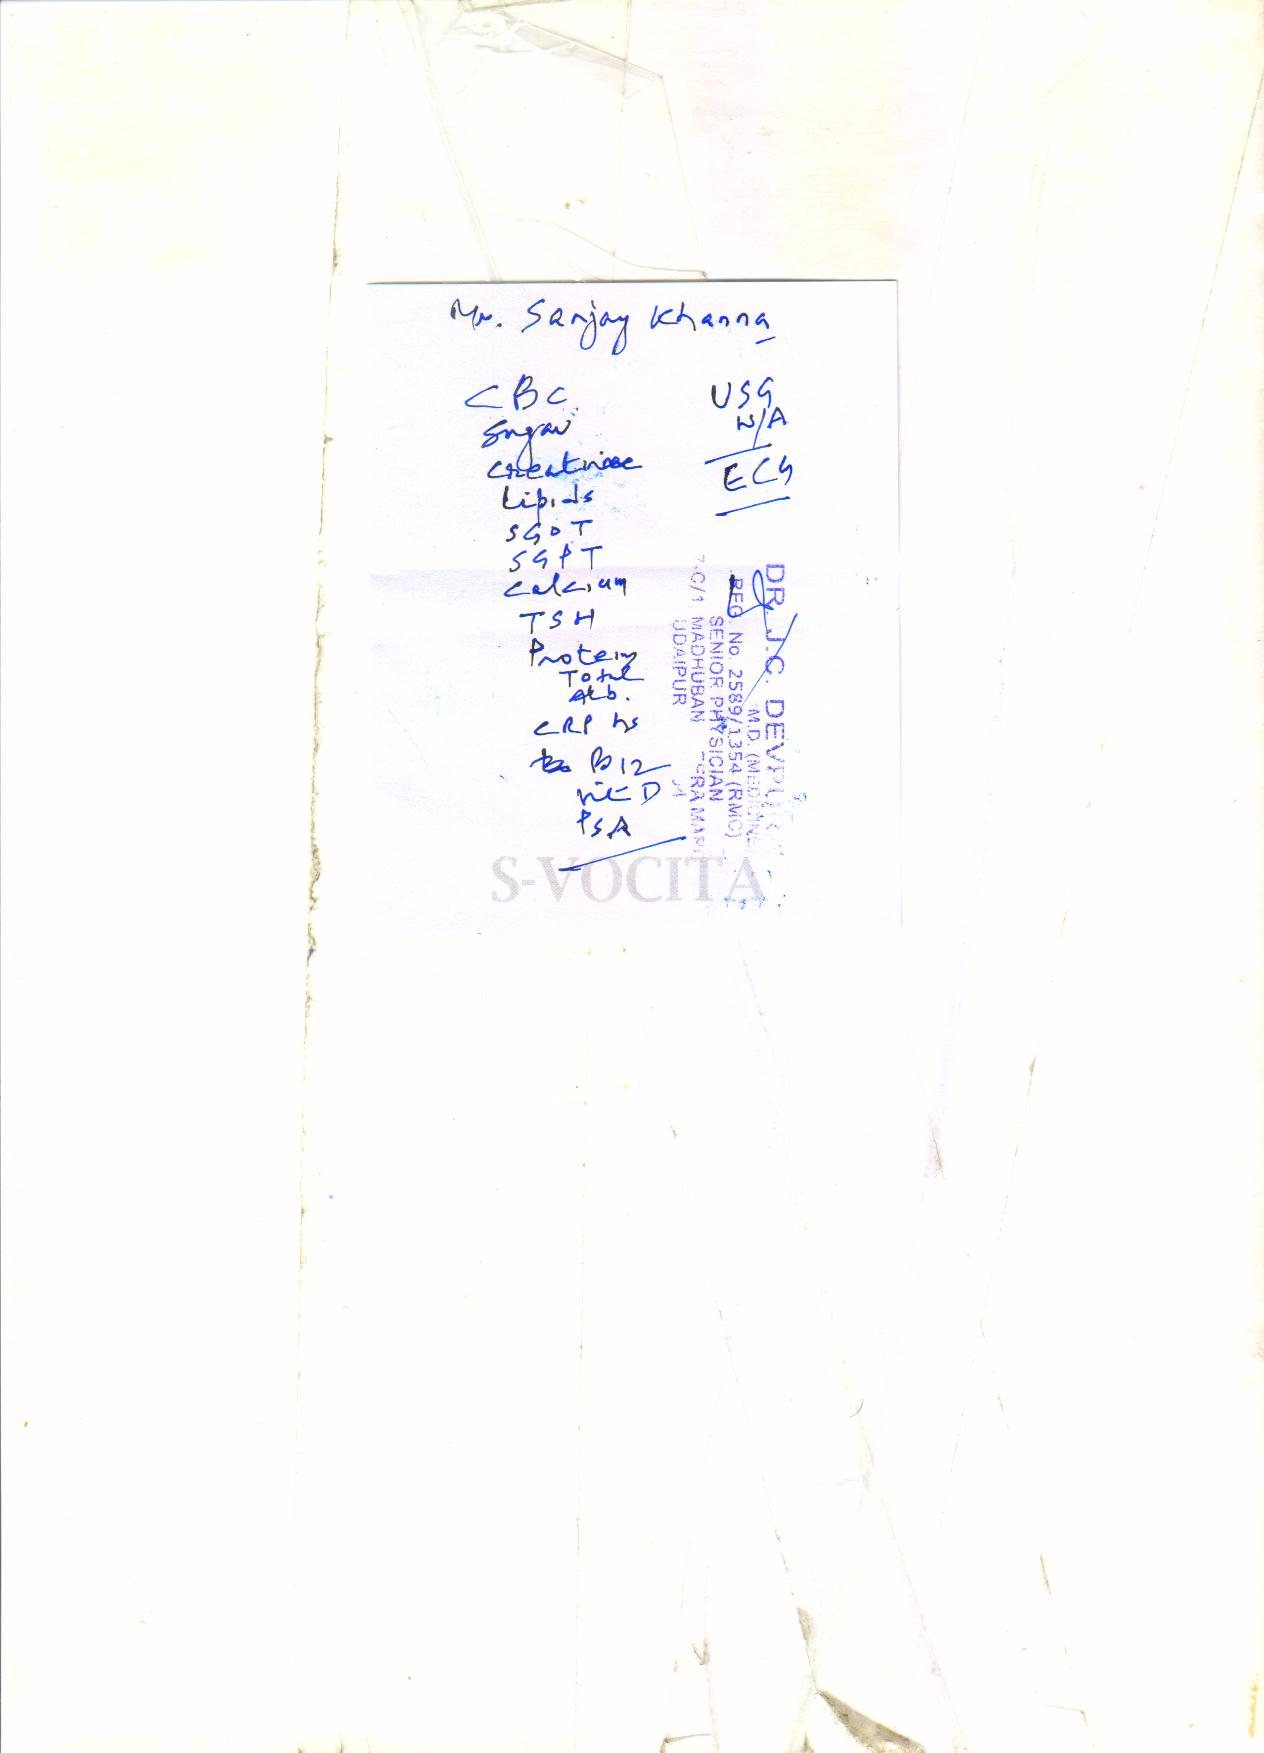 Mr. Sanjay Khanna
CBC
Sugar
Creatinine
Lipids
SGOT
SGPT
Calcium
TSH
Protein
Total
Alb.
CRP hs
B12
Vit D
PSA
USG
W/A
ECG
DR. J.C. DEVPURA
M.D. (MEDICINE
REG. No. 2589/1354 (RMC)
SENIOR PHYSICIAN
7-C/1 MADHUBAN
UDAIPUR
S-VOCITA